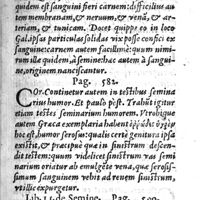 quidem est sanguini fieri carnem: difficilius au
tem membranam, & neruum, & venã, & ar-
teriam, & tunicam. Docet quippe eo in loco
Gal. ipsas particulas solidas vix posse confici ex
sanguine: carnem autem facillimè: quum nimi-
rum illæ quidem à semine: hæc autem à sangui-
ne, originem nanciscantur.
Pag. 582.
COr. Continetur autem in testibus semina
rius humor. Et paulò pòst. Trahũt igitur
etiam testes seminarium humorem. Vtrobique
autem Græca exemplaria habent
hoc est, humor serosus: qualis certè genitura ipsa
existit, & præcipuè qua in sinistrum descen-
dit testem: quum videlicet sinistrum vas semi
narium oriatur ab emulgẽte vena, quæ serosis-
simum sanguinem vehit ad renem sinistrum,
vt illic expurgetur.
Lib. 14. de Semine. Pag.